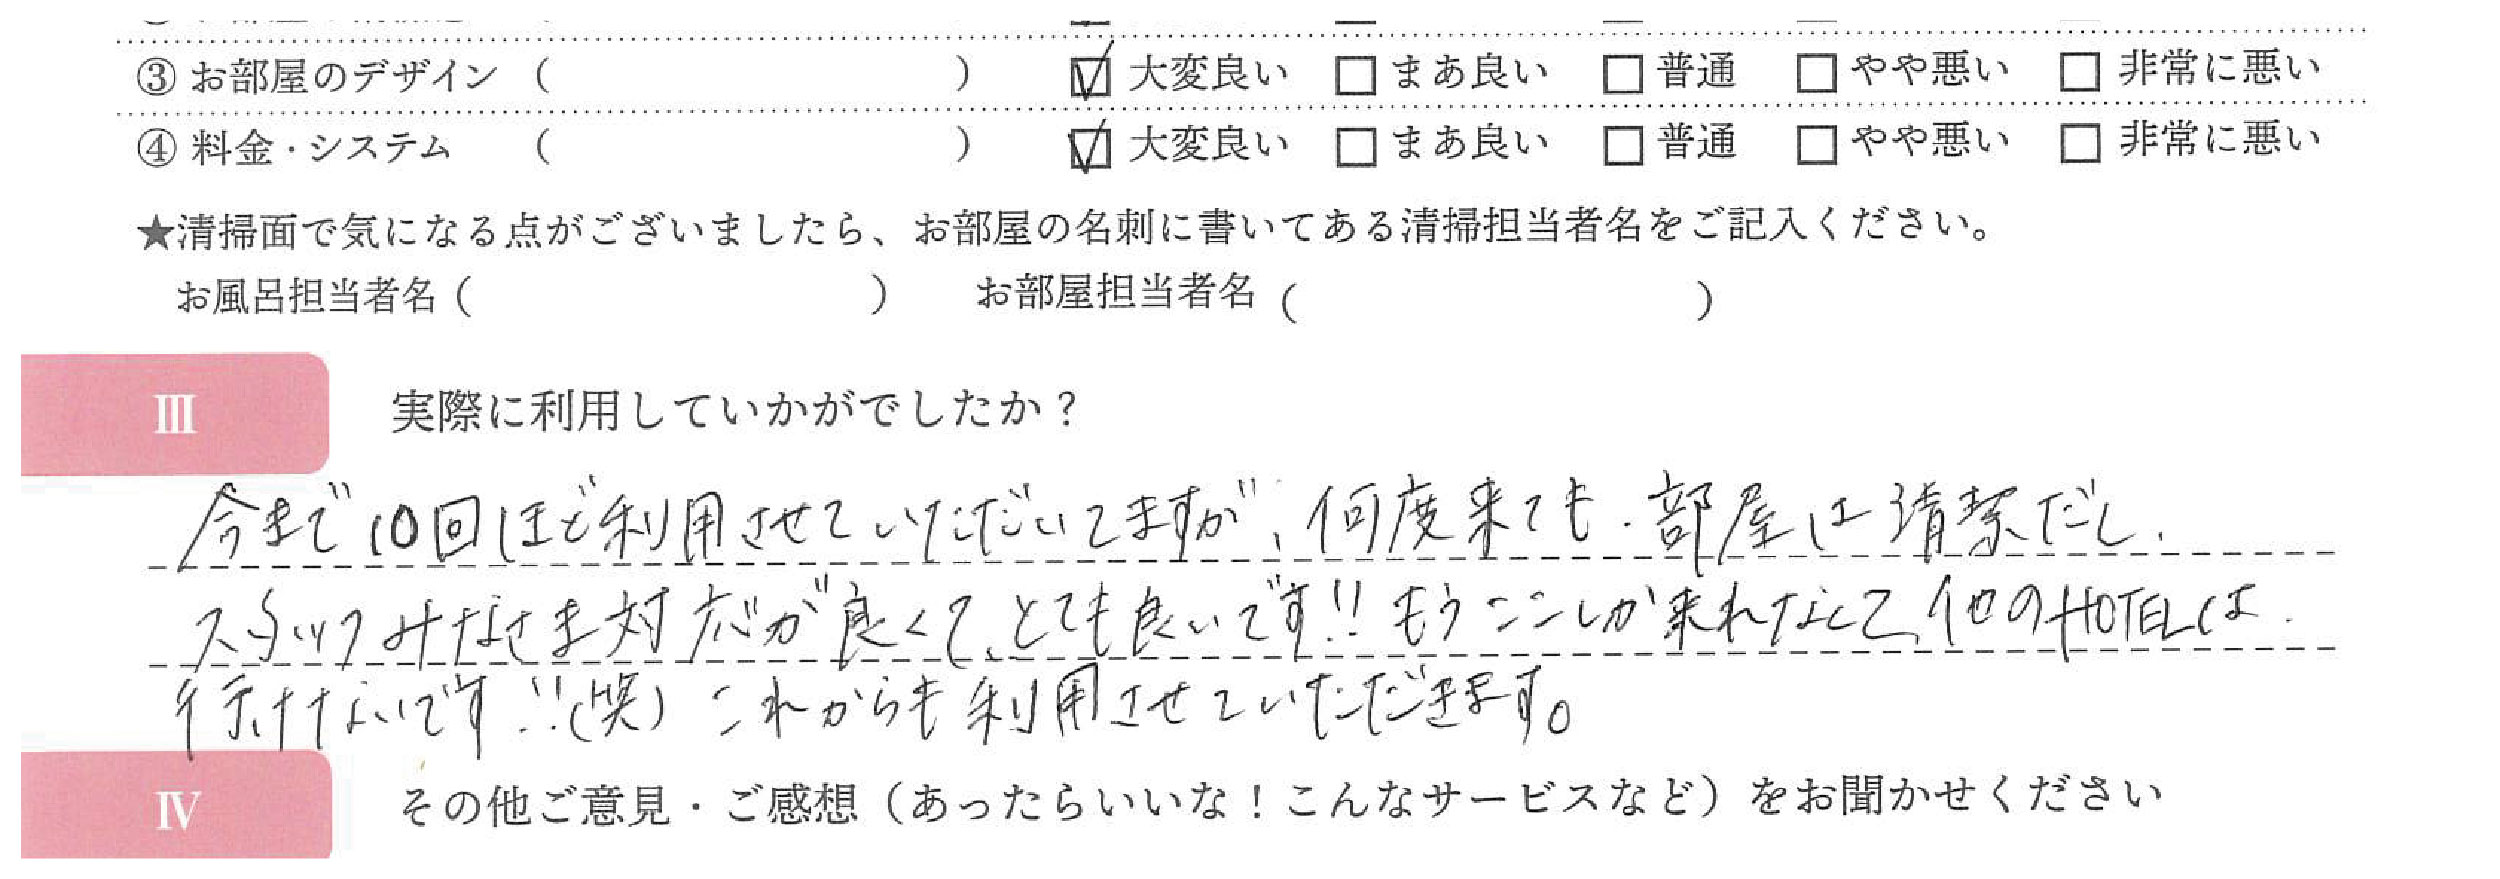 ③ お部屋のデザイン ( ) ☑ 大変良い □ まあ良い □ 普通 □ やや悪い □ 非常に悪い
④ 料金・システム ( ) ☑ 大変良い □ まあ良い □ 普通 □ やや悪い □ 非常に悪い
★清掃面で気になる点がございましたら、お部屋の名刺に書いてある清掃担当者名をご記入ください。
お風呂担当者名 ( ) お部屋担当者名 ( )
III 実際に利用していかがでしたか？
今まで10回ほど利用させていただいてますが、何度来ても、部屋は清潔だし、
スタッフみなさま対応が良くて、とても良いです!! もうここしか来れなくて、他のHOTELは、
行けないです!!(笑) これからも利用させていただきます。
IV その他ご意見・ご感想（あったらいいな！こんなサービスなど）をお聞かせください